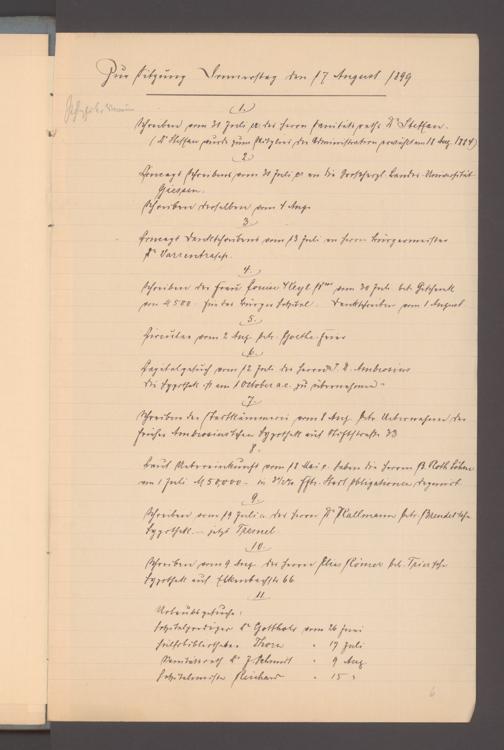 Zur Sitzung Donnerstag den 17 August 1899
1.
Schreiben vom 31 Juli cr. des Herrn Sanitätsraths Dr Steffan.
(Dr Steffan wurde zum Mitglied der Administration erwählt am 18 Aug. 1884)
2
Concept Schreibens vom 31 Juli cr an die Großherzgl. Landes-Universität
Giessen.
Schreiben derselben vom 4 Aug.
3
Concept Dankschreibens vom 13 Juli an Herrn Bürgermeister
Dr Varrentrapp.
4.
Schreiben der Frau Louise Heyl vom 30 Juli btr. Geschenk
von M 500. für das Bürger Hospital. Dankschreiben vom 1 August
5.
Circular vom 2 Aug. betr. Goethe-Feier
6.
Capitalgesuch vom 12 Juli des Herrn A. Ambrosius
die Hypothek ist am 1 October a.c. zu übernehmen
7.
Schreiben der Stadtkämmerei vom 8 Aug. betr. Uebernahme der
früher Ambrosius'schen Hypothek auf Stiftstraße 33
8.
Laut Uebereinkunft vom 18 Mai c. haben die Herren B. Roth Söhne
am 1 Juli M 50,000.- in 3½% Obligationen deponirt
9.
Schreiben vom 19 Juli a. des Herrn Dr Kallmann betr. Brendel'sche
Hypothek. - jetzt Tresnel
10
Schreiben vom 9 Aug. des Herrn Römer btr.
Hypothek auf Elkenbachstr 66
11
Urlaubsgesuche:
Hospitalprediger Dr Gotthold vom 26 Juni
Hülfsbibliothekar Thorn " 17 Juli
Sanitätsrath Dr J. Schmidt " 9 Aug.
Hospitalmeister Reichard " 15 "
6